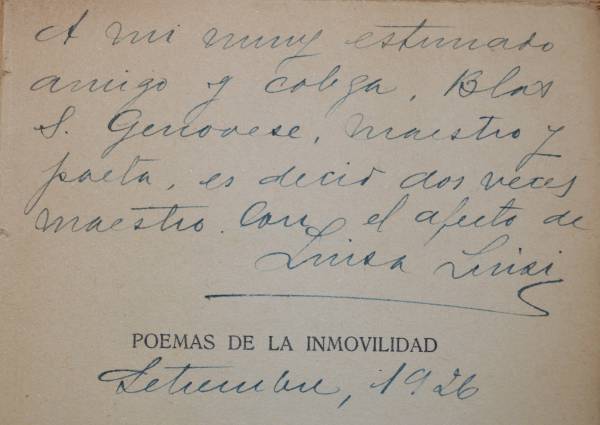 A mi muy estimado
amigo y colega, Blas
S. Genovese, maestro y
poeta, es decir dos veces
maestro. Con el afecto de
Luisa Luisi
POEMAS DE LA INMOVILIDAD
Setiembre, 1926